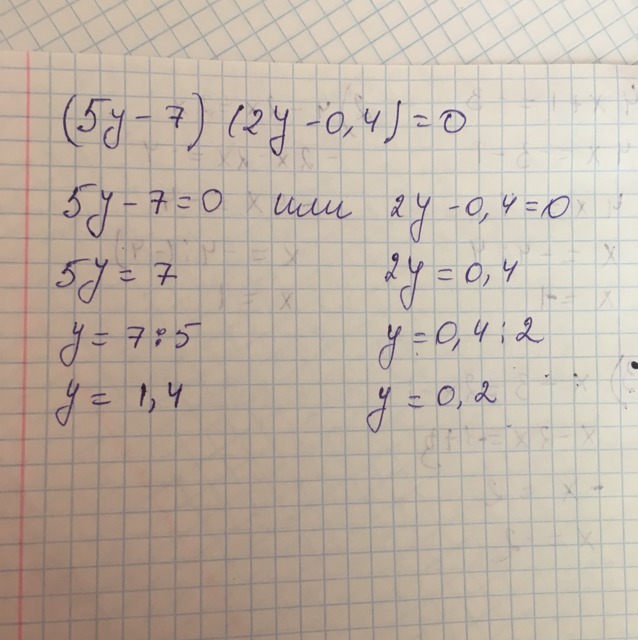 (5y - 7) (2y - 0,4) = 0
5y - 7 = 0 или 2y - 0,4 = 0
5y = 7 2y = 0,4
y = 7 : 5 y = 0,4 : 2
y = 1,4 y = 0,2